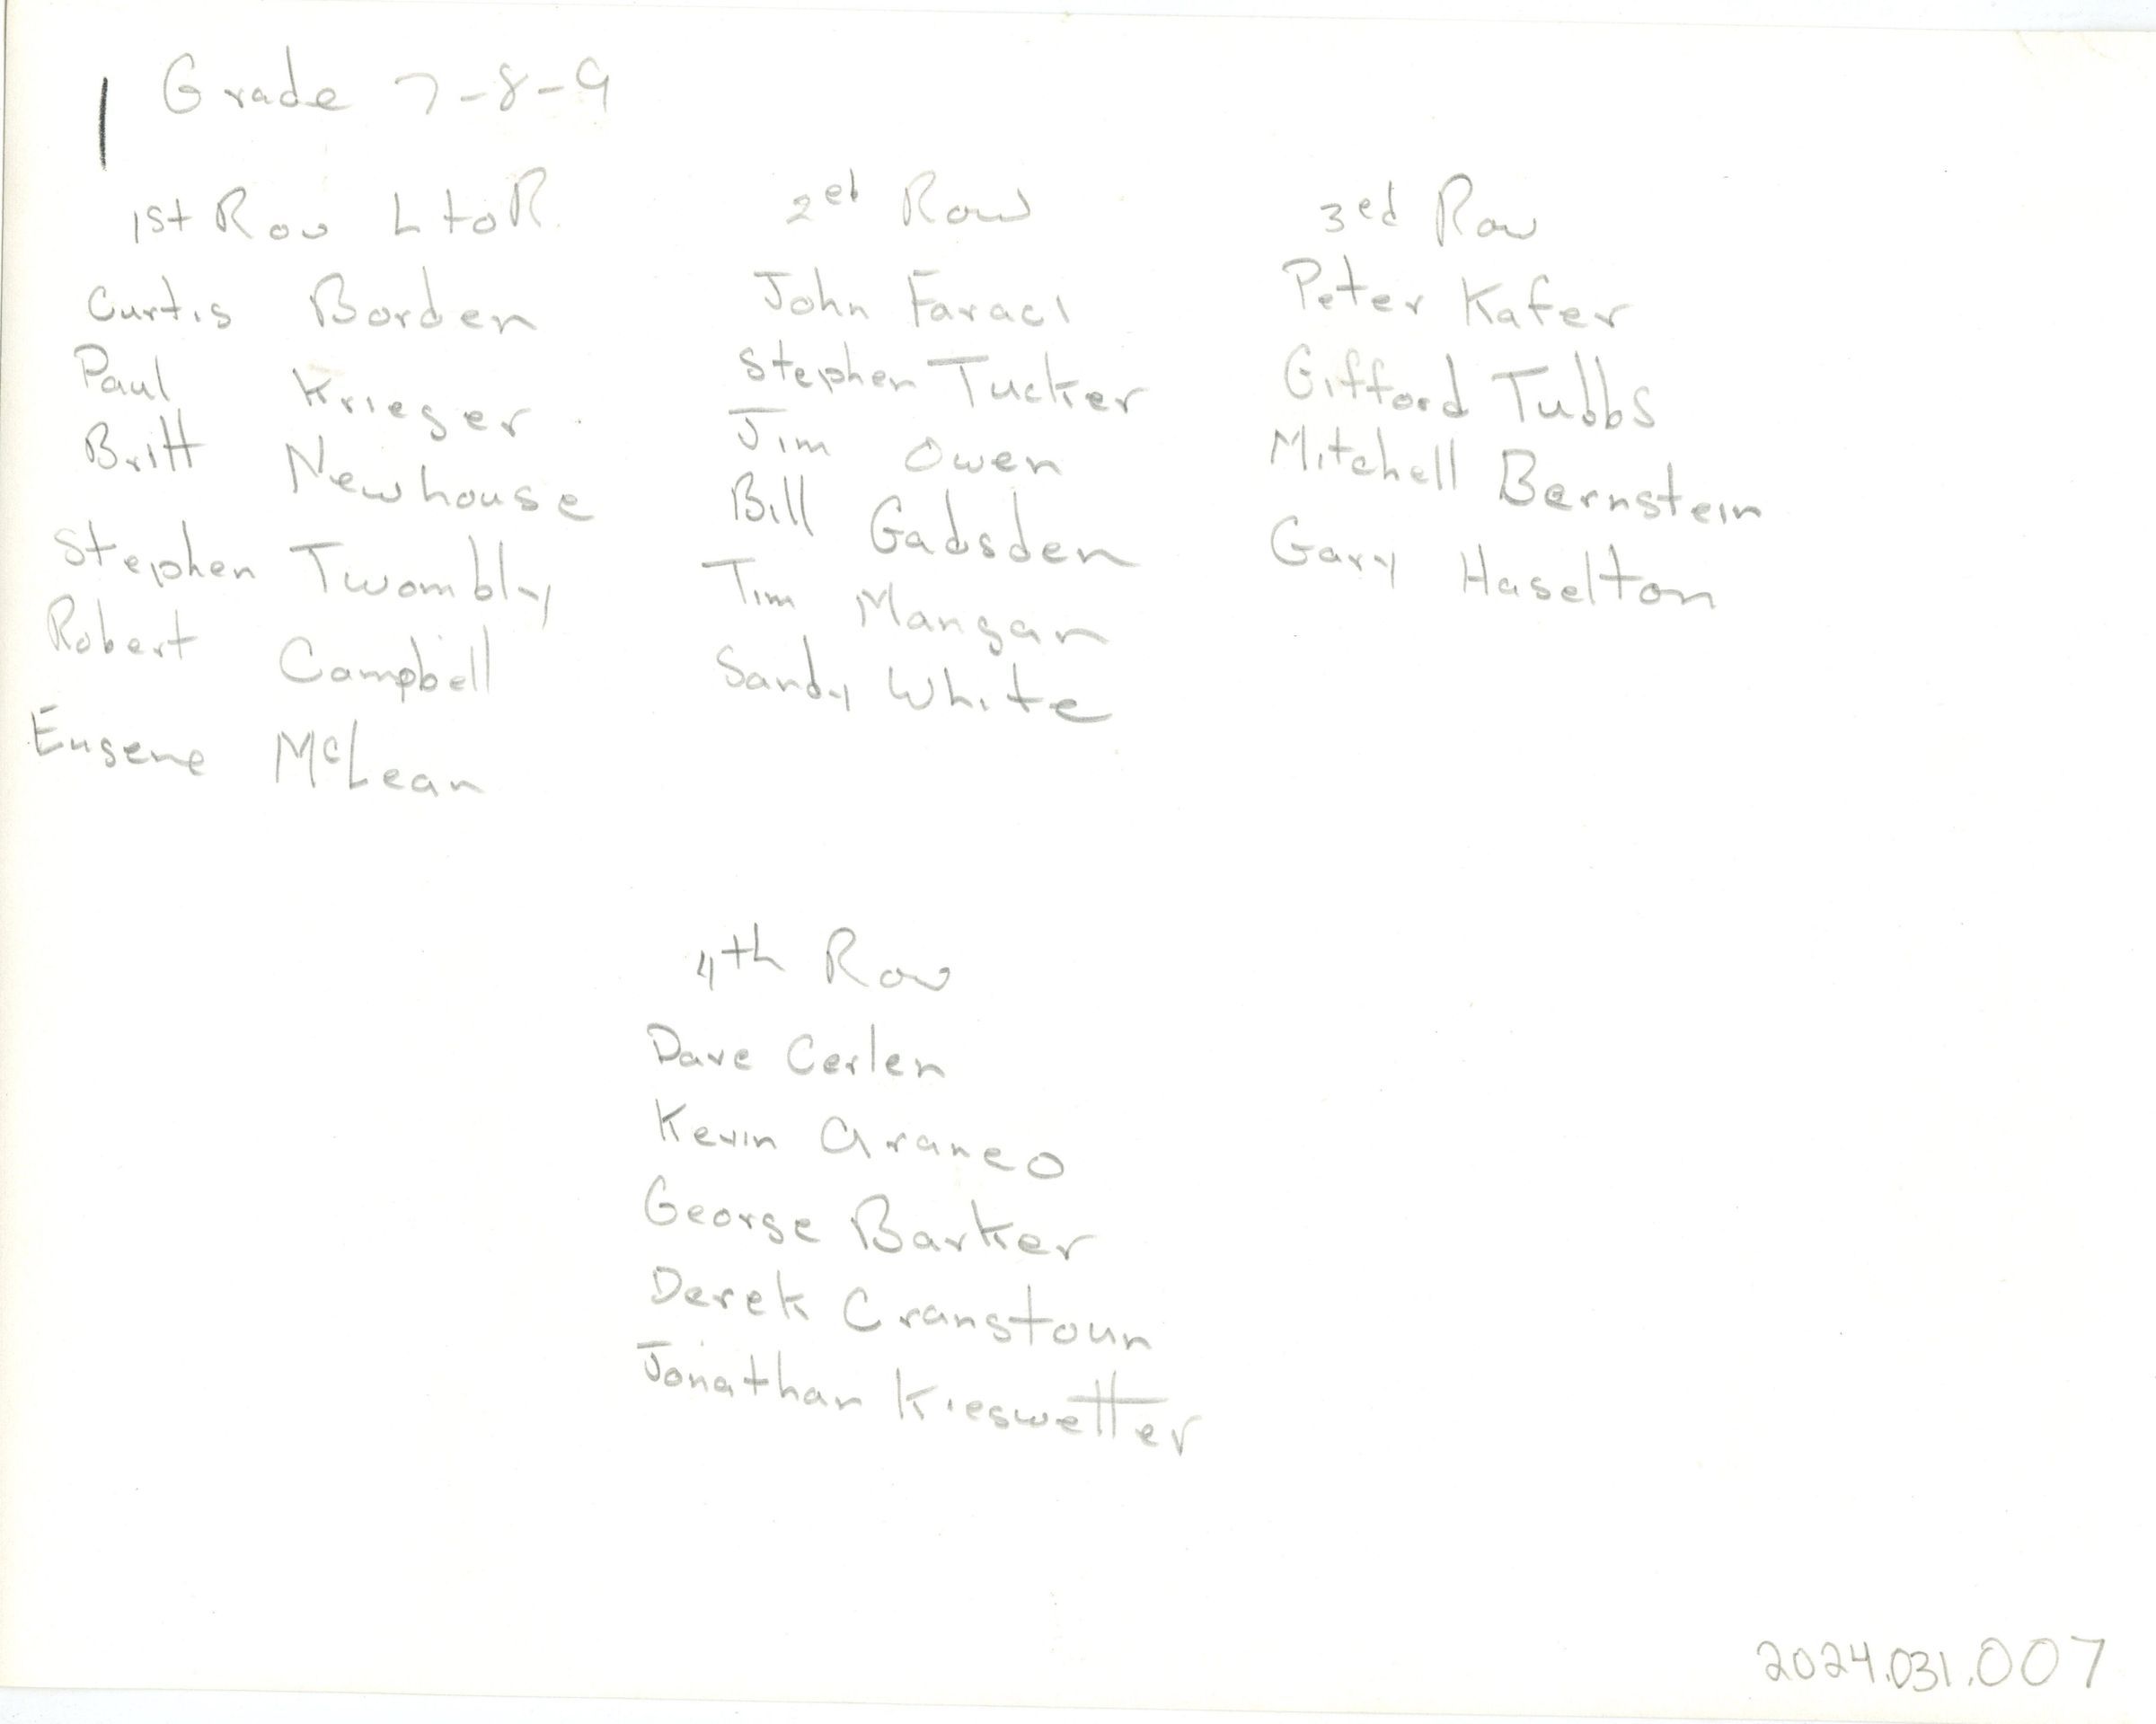 Grade 7-8-9
1st Row L to R
Curtis Borden
Paul Krieger
Britt Newhouse
Stephen Twombly
Robert Campbell
Eugene McLean
2ed Row
John Faraci
Stephen Tucker
Jim Owen
Bill Gadsden
Tim Mangan
Sandy White
3ed Row
Peter Kafer
Gifford Tubbs
Mitchell Bernstein
Gary Haselton
4th Row
Dave Cerlen
Kevin Araneo
George Barker
Derek Cranstoun
Jonathan Kieswetter
2024.031.007